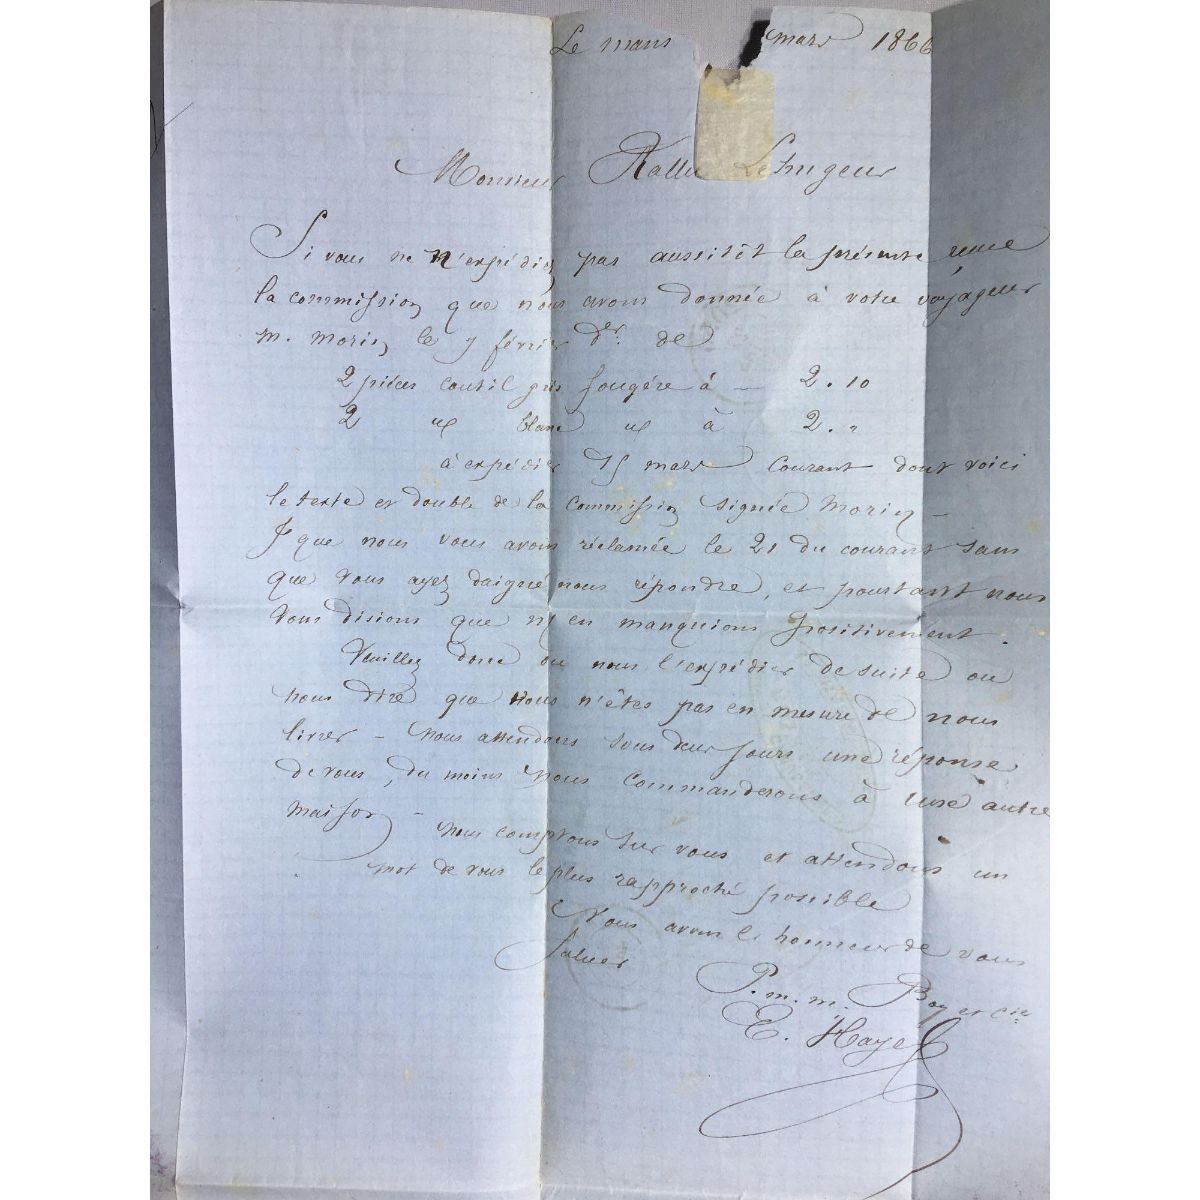 Le mans mars 1866
Monsieur Rallu Lehugeur
Si vous ne n'expédiez pas aussitôt la présente reçue
la commission que nous avons donnée à votre voyageur
m. Morin le 7 février der. de
2 pièces coutil gris fougère à — 2.10
2 " blanc " à 2."
à expédier 15 mars courant dont voici
le texte et double de la commission signée Morin —
que nous vous avons réclamée le 21 du courant sans
que vous ayez daigné nous répondre, et pourtant nous
vous disions que n/ en manquions positivement.
Veuillez donc ou nous l'expédier de suite ou
nous dire que vous n'êtes pas en mesure de nous
livrer — nous attendons sous deux jours une réponse
de vous, du moins nous commanderons à une autre
maison — nous comptons sur vous et attendons un
mot de vous le plus rapproché possible
Nous avons le honneur de vous
saluer
P. m. m. Boy et Cie
E. Haye